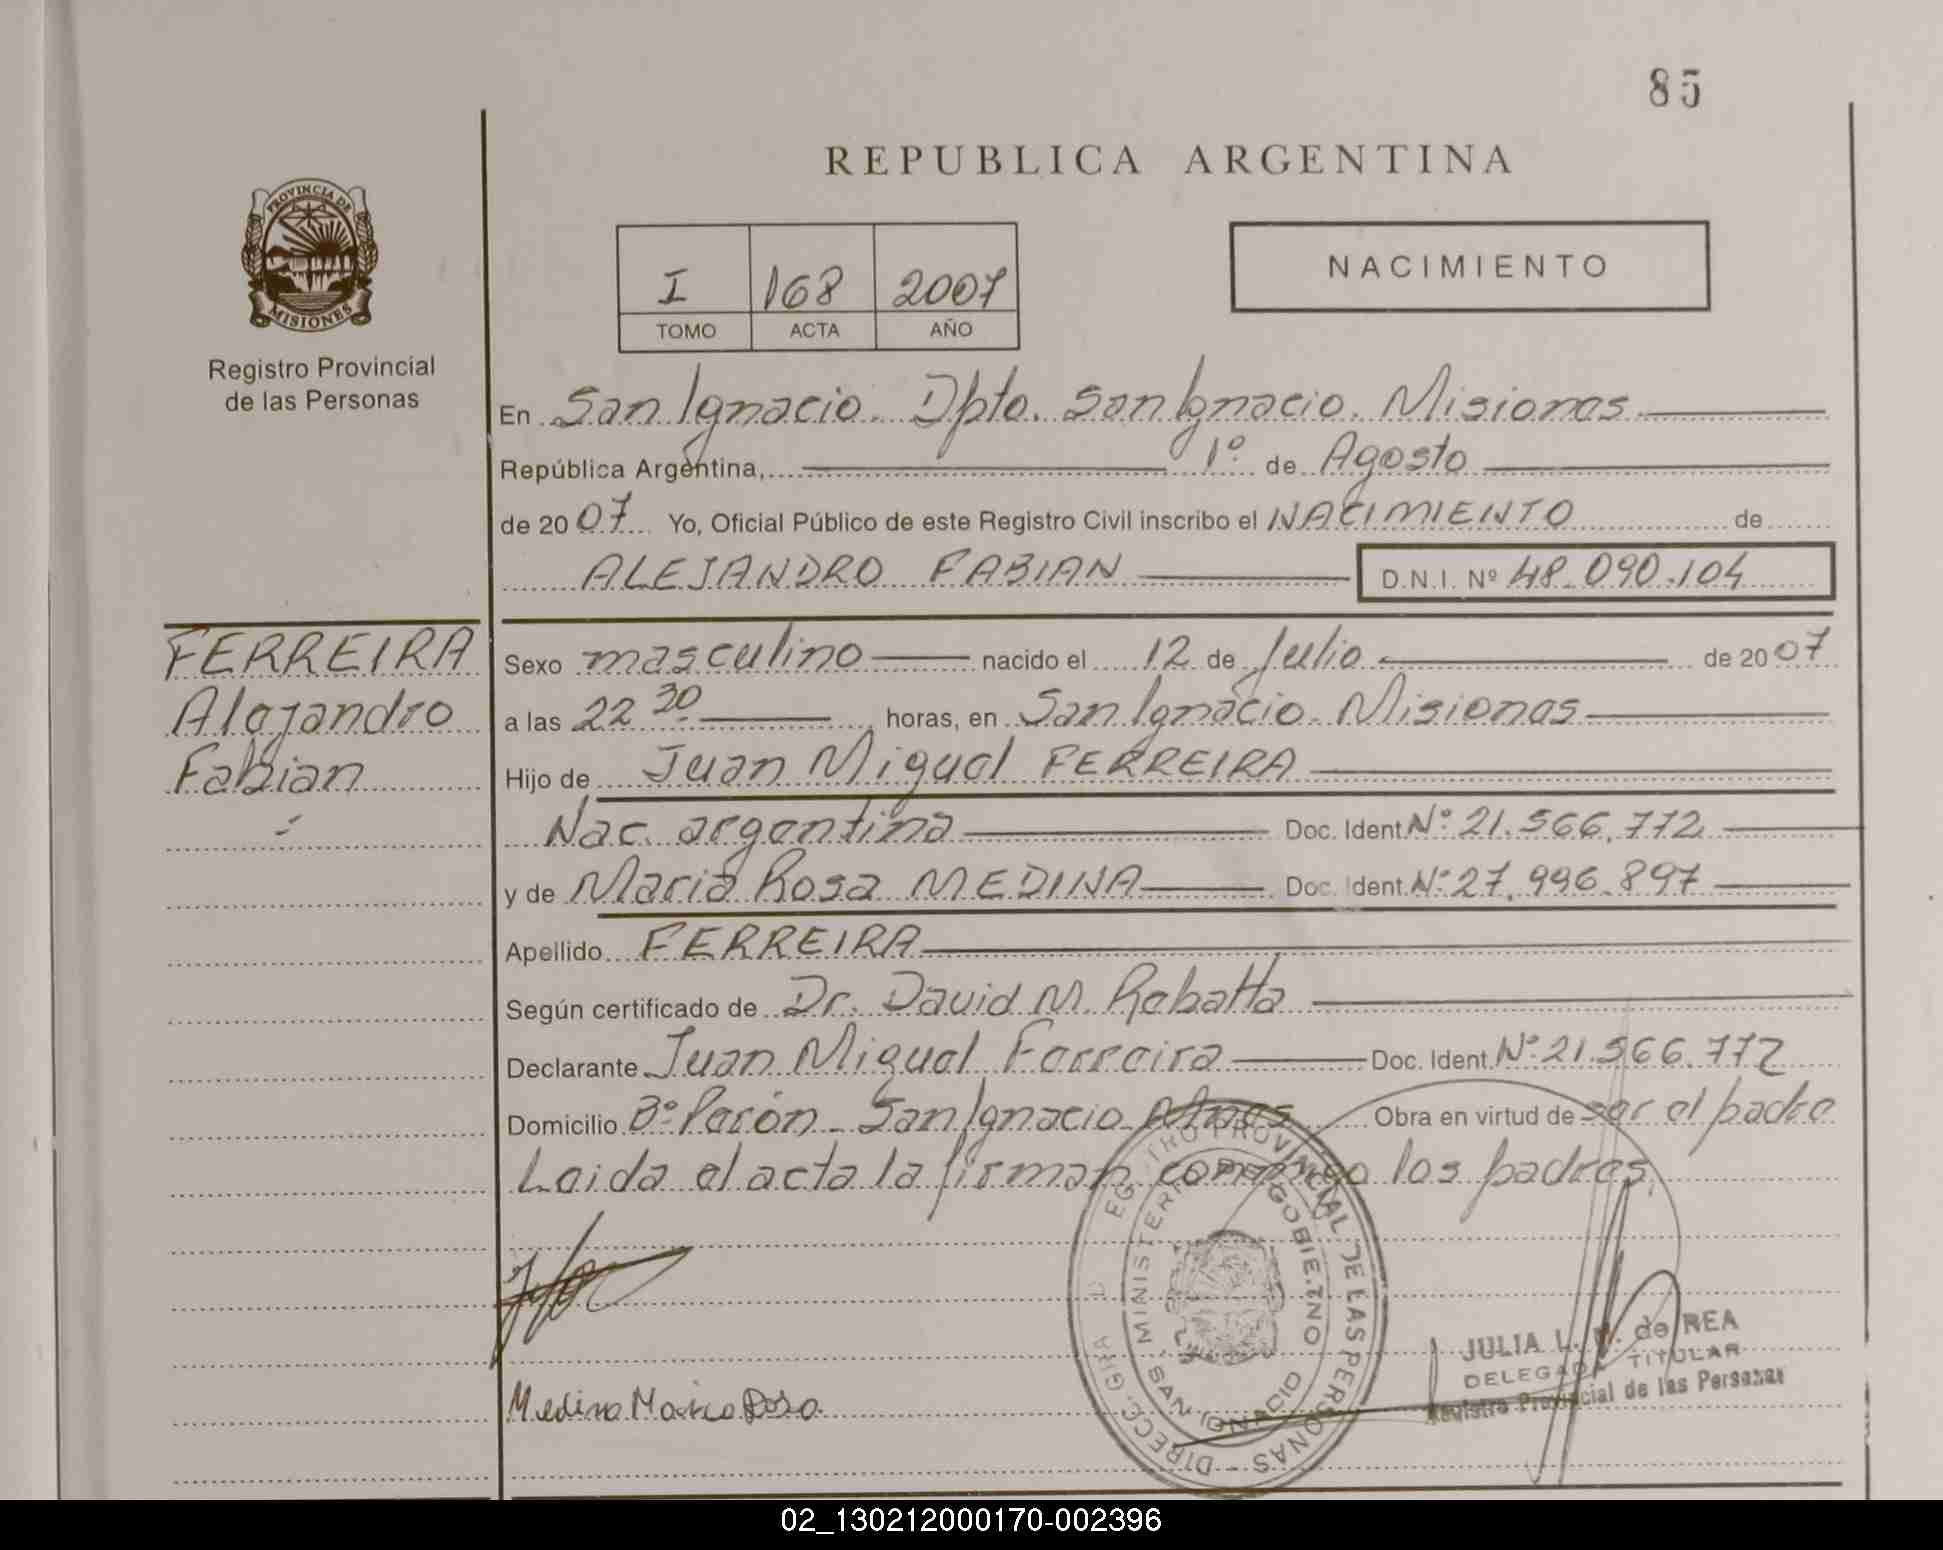 85
REPUBLICA ARGENTINA
PROVINCIA DE
MISIONES
Registro Provincial
de las Personas
I 168 2007
TOMO ACTA AÑO
NACIMIENTO
En San Ignacio. Dpto. San Ignacio. Misiones
República Argentina, 1º de Agosto
de 2007 Yo, Oficial Público de este Registro Civil inscribo el NACIMIENTO de
ALEJANDRO FABIAN D.N.I. Nº 48.090.104
FERREIRA
Alejandro
Fabian
Sexo masculino nacido el 12 de Julio de 2007
a las 22 30 horas, en San Ignacio. Misiones
Hijo de Juan Miguel FERREIRA
Nac. argentina Doc. Ident. Nº 21.566.772
y de Maria Rosa MEDINA Doc. Ident. Nº 27.996.897
Apellido FERREIRA
Según certificado de Dr. David M. Rebatta
Declarante Juan Miguel Ferreira Doc. Ident. Nº 21.566.772
Domicilio Bº Perón - San Ignacio Mnes Obra en virtud de ser el padre
Leida el acta la firman conmigo los padres.
Medina Maria Rosa
PROVINCIAL DE LAS PERSONAS - DIRECC. GRAL
MINISTERIO DE GOBIERNO
SAN IGNACIO
JULIA L. de REA
DELEGADA TITULAR
Registro Provincial de las Personas
02_130212000170-002396